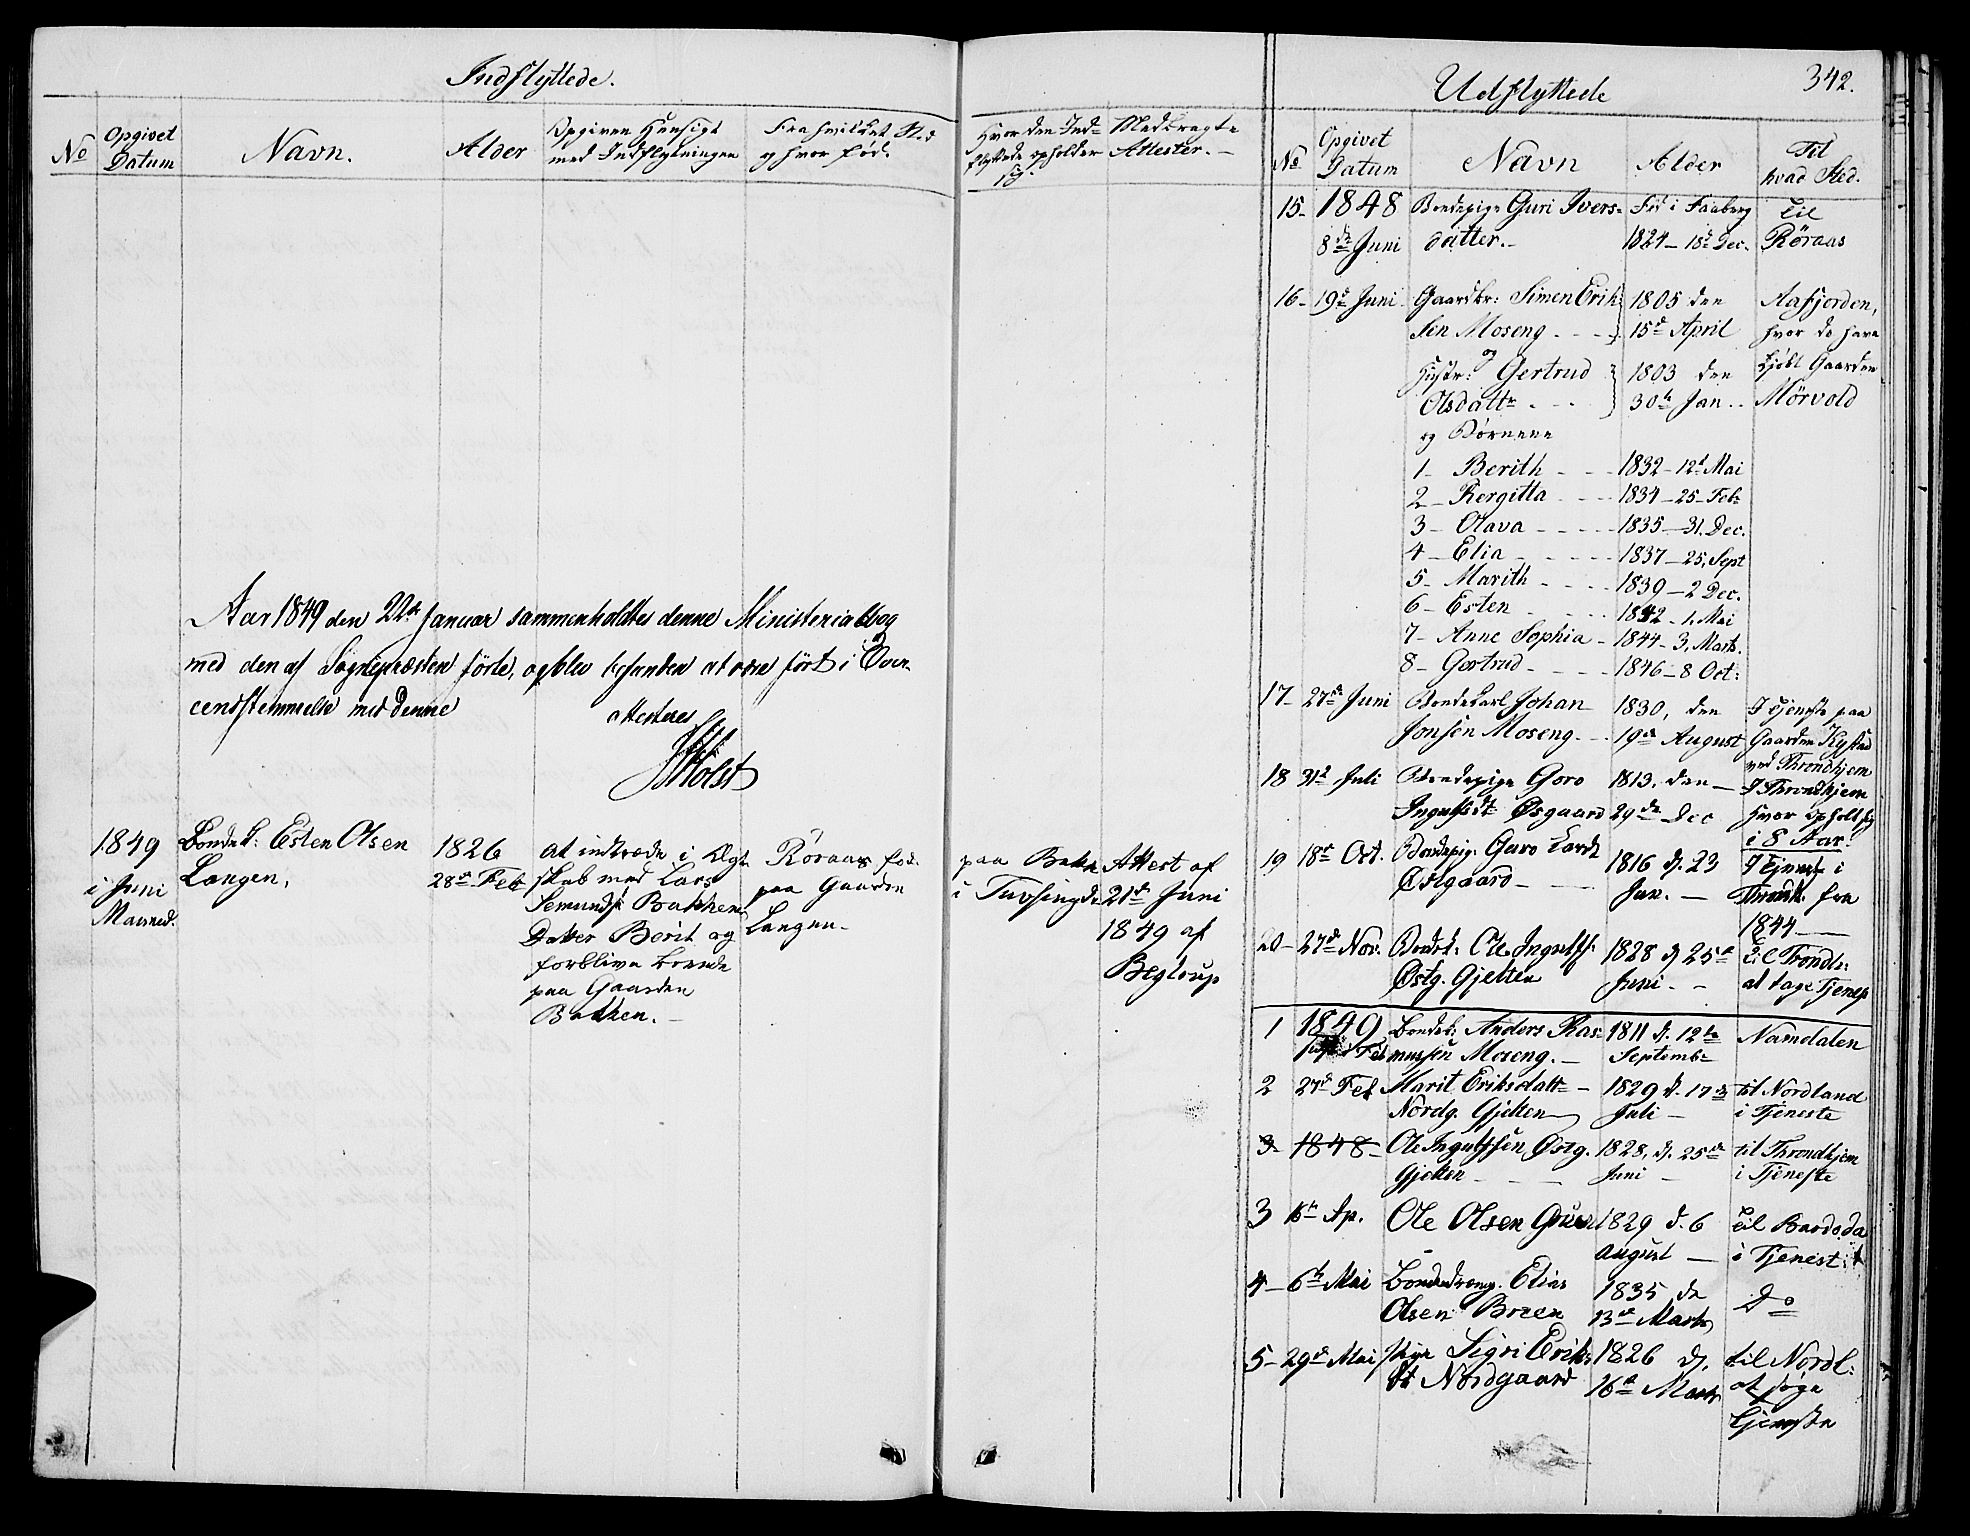 Indflyttede.
No
Opgivet
Datum
Navn.
Alder
Opgiven Hensigt
med Indflytningen
Fra hvilket Sted
og hvor fød.
Hvor den Ind-
flyttede opholder
sig.
Medbragte
Attester.-
Aar 1849 den 22de Januar sammenholdtes denne Ministerialbog
med den af Sognepræsten førte, og blev befunden at være ført i Over-
eenstemmelse med denne
attesteres
Holst
1849
i Juni
Maaned.
Bondek: Esten Olsen
Langen,
1826
28de Feb
at indtræde i Ægte
skab med Lars
Semunds: Bakkens
Datter Berit og
forblive boende
paa Gaarden
Bakken.-
Røraas fød
paa Gaarden
Langen-
paa Bakken
i
Attest af
21de Juni
1849 af
Begtrup
Udflyttede
342.
No
Opgivet
Datum
Navn
Alder
Til
hvad Sted.
15- 1848 Bondepige Guri Ivers- Fød i Faaberg til
8de Juni datter.- 1824-18de Dec. Røraas
16- 19de Juni Gaardbr: Simen Erik- 1805 den Aafjorden,
sen Moseng - - - 15de April hvor de have
og
Hustr: Gertrud 1803 den kjøbt Gaarden
Olsdattr - - - 30te Jan.. Mørvold
og Børnene
1- Berith - - - 1832-12te Mai
2- Bergitta - - - 1834-25-Feb:
3- Olava - - - - 1835-31. Dec.
4- Elia - - - - 1837-25, Sept
5- Marith - - - - 1839-2 Dec.
6- Esten - - - - 1842-1. Mai
7- Anne Sophia - 1844-3, Marts.
8- Gertrud - - - - 1846-8 Oct:
17- 27de Juni Bondekarl Johan 1830, den I Tjeneste paa
Jonsen Moseng.- - 19de August Gaarden Kystad
ved Throndhjem
18 31te Juli Bondepige Goro 1813, den - I Throndhjem
Ingulfsdt Øsgaard 29de Dec hvor opholt sig
i 8 Aar.
19 18de Oct. Bondepig. Guro Larsdt 1816 d. 23 I Tjeneste i
Østgaard- Jan. - Throndh. fra
1844-
20- 27de Nov. Bondek: Ole Ingulfs: 1828 d 25de til Trondh:
Østg. Gjelten Juni - - at tage Tjenest
1 1849 Bondek: Anders Ras- 1811 d. 12te Namdalen
Feb mussen Moseng.- Septembr
2 27de Feb Marit Eriksdatt- 1829 d. 17de til Nordland
Nordg. Gjelten Juli - i Tjeneste
3- 1848- Ole Ingulfssen Østg. 1828, d. 25de til Throndhjem
Gjelten - - - Juni - i Tjeneste
3 16de Ap. Ole Olsen Gruen 1829 d. 6 til Bardoda
August - i Tjenest:
4- 6te Mai Bondedreng. Elias 1835 de Do
Olsen Broen 13de Marts
5- 29de Mai Pige Sigri Eriks 1826 d. til Nordl:
dt Nordgaard 16de Marts at søge
tjeneste